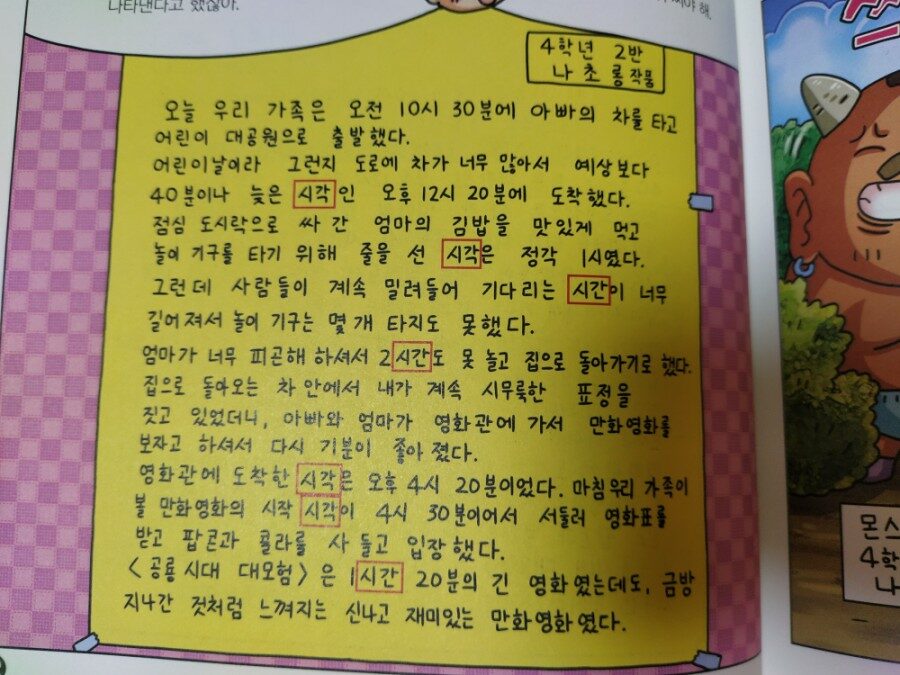 나타낸다고 했잖아.
써야 해.
4학년 2반
나 초롱 작품
오늘 우리 가족은 오전 10시 30분에 아빠의 차를 타고
어린이 대공원으로 출발했다.
어린이날이라 그런지 도로에 차가 너무 많아서 예상보다
40분이나 늦은 시각인 오후 12시 20분에 도착했다.
점심 도시락으로 싸 간 엄마의 김밥을 맛있게 먹고
놀이 기구를 타기 위해 줄을 선 시각은 정각 1시였다.
그런데 사람들이 계속 밀려들어 기다리는 시간이 너무
길어져서 놀이 기구는 몇 개 타지도 못했다.
엄마가 너무 피곤해 하셔서 2시간도 못 놀고 집으로 돌아가기로 했다.
집으로 돌아오는 차 안에서 내가 계속 시무룩한 표정을
짓고 있었더니, 아빠와 엄마가 영화관에 가서 만화영화를
보자고 하셔서 다시 기분이 좋아 졌다.
영화관에 도착한 시각은 오후 4시 20분이었다. 마침 우리 가족이
볼 만화영화의 시작 시각이 4시 30분이어서 서둘러 영화표를
받고 팝콘과 콜라를 사 들고 입장했다.
<공룡시대 대모험>은 1시간 20분의 긴 영화였는데도, 금방
지나간 것처럼 느껴지는 신나고 재미있는 만화영화였다.
몬스
4학
나